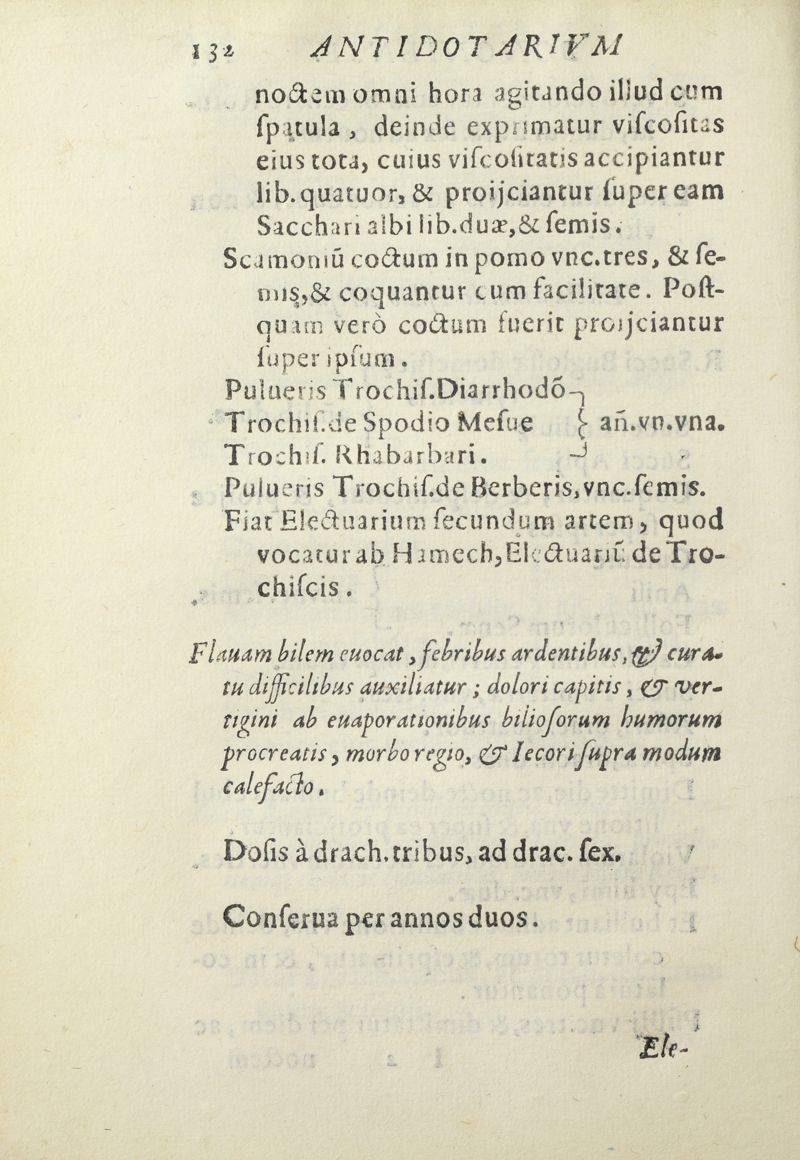 132 ANTIDOTARIVM
noctem omni hora agitando illud cum
ſpatula, deinde exprimatur viſcoſitas
eius tota, cuius viſcoſitatis accipiantur
lib. quatuor, & proijciantur ſuper eam
Sacchari albi lib. duæ, & ſemis.
Scamoniū coctum in pomo vnc. tres, & ſe-
mis, & coquantur cum facilitate. Poſt-
quam verò coctum fuerit proijciantur
ſuper ipſum.
Pulueris Trochiſ. Diarrhodō
Trochiſ. de Spodio Meſue } añ. vn. vna.
Trochiſ. Rhabarbari.
Pulueris Trochiſ. de Berberis, vnc. ſemis.
Fiat Electuarium ſecundum artem, quod
vocatur ab Hamech, Electuariū de Tro-
chiſcis.
Flauam bilem euocat, febribus ardentibus, & cura-
tu difficilibus auxiliatur; dolori capitis, & ver-
tigini ab euaporationibus bilioſorum humorum
procreatis, morbo regio, & Iecori ſupra modum
calefacto.
Doſis à drach. tribus, ad drac. ſex.
Conſerua per annos duos.
Ele-